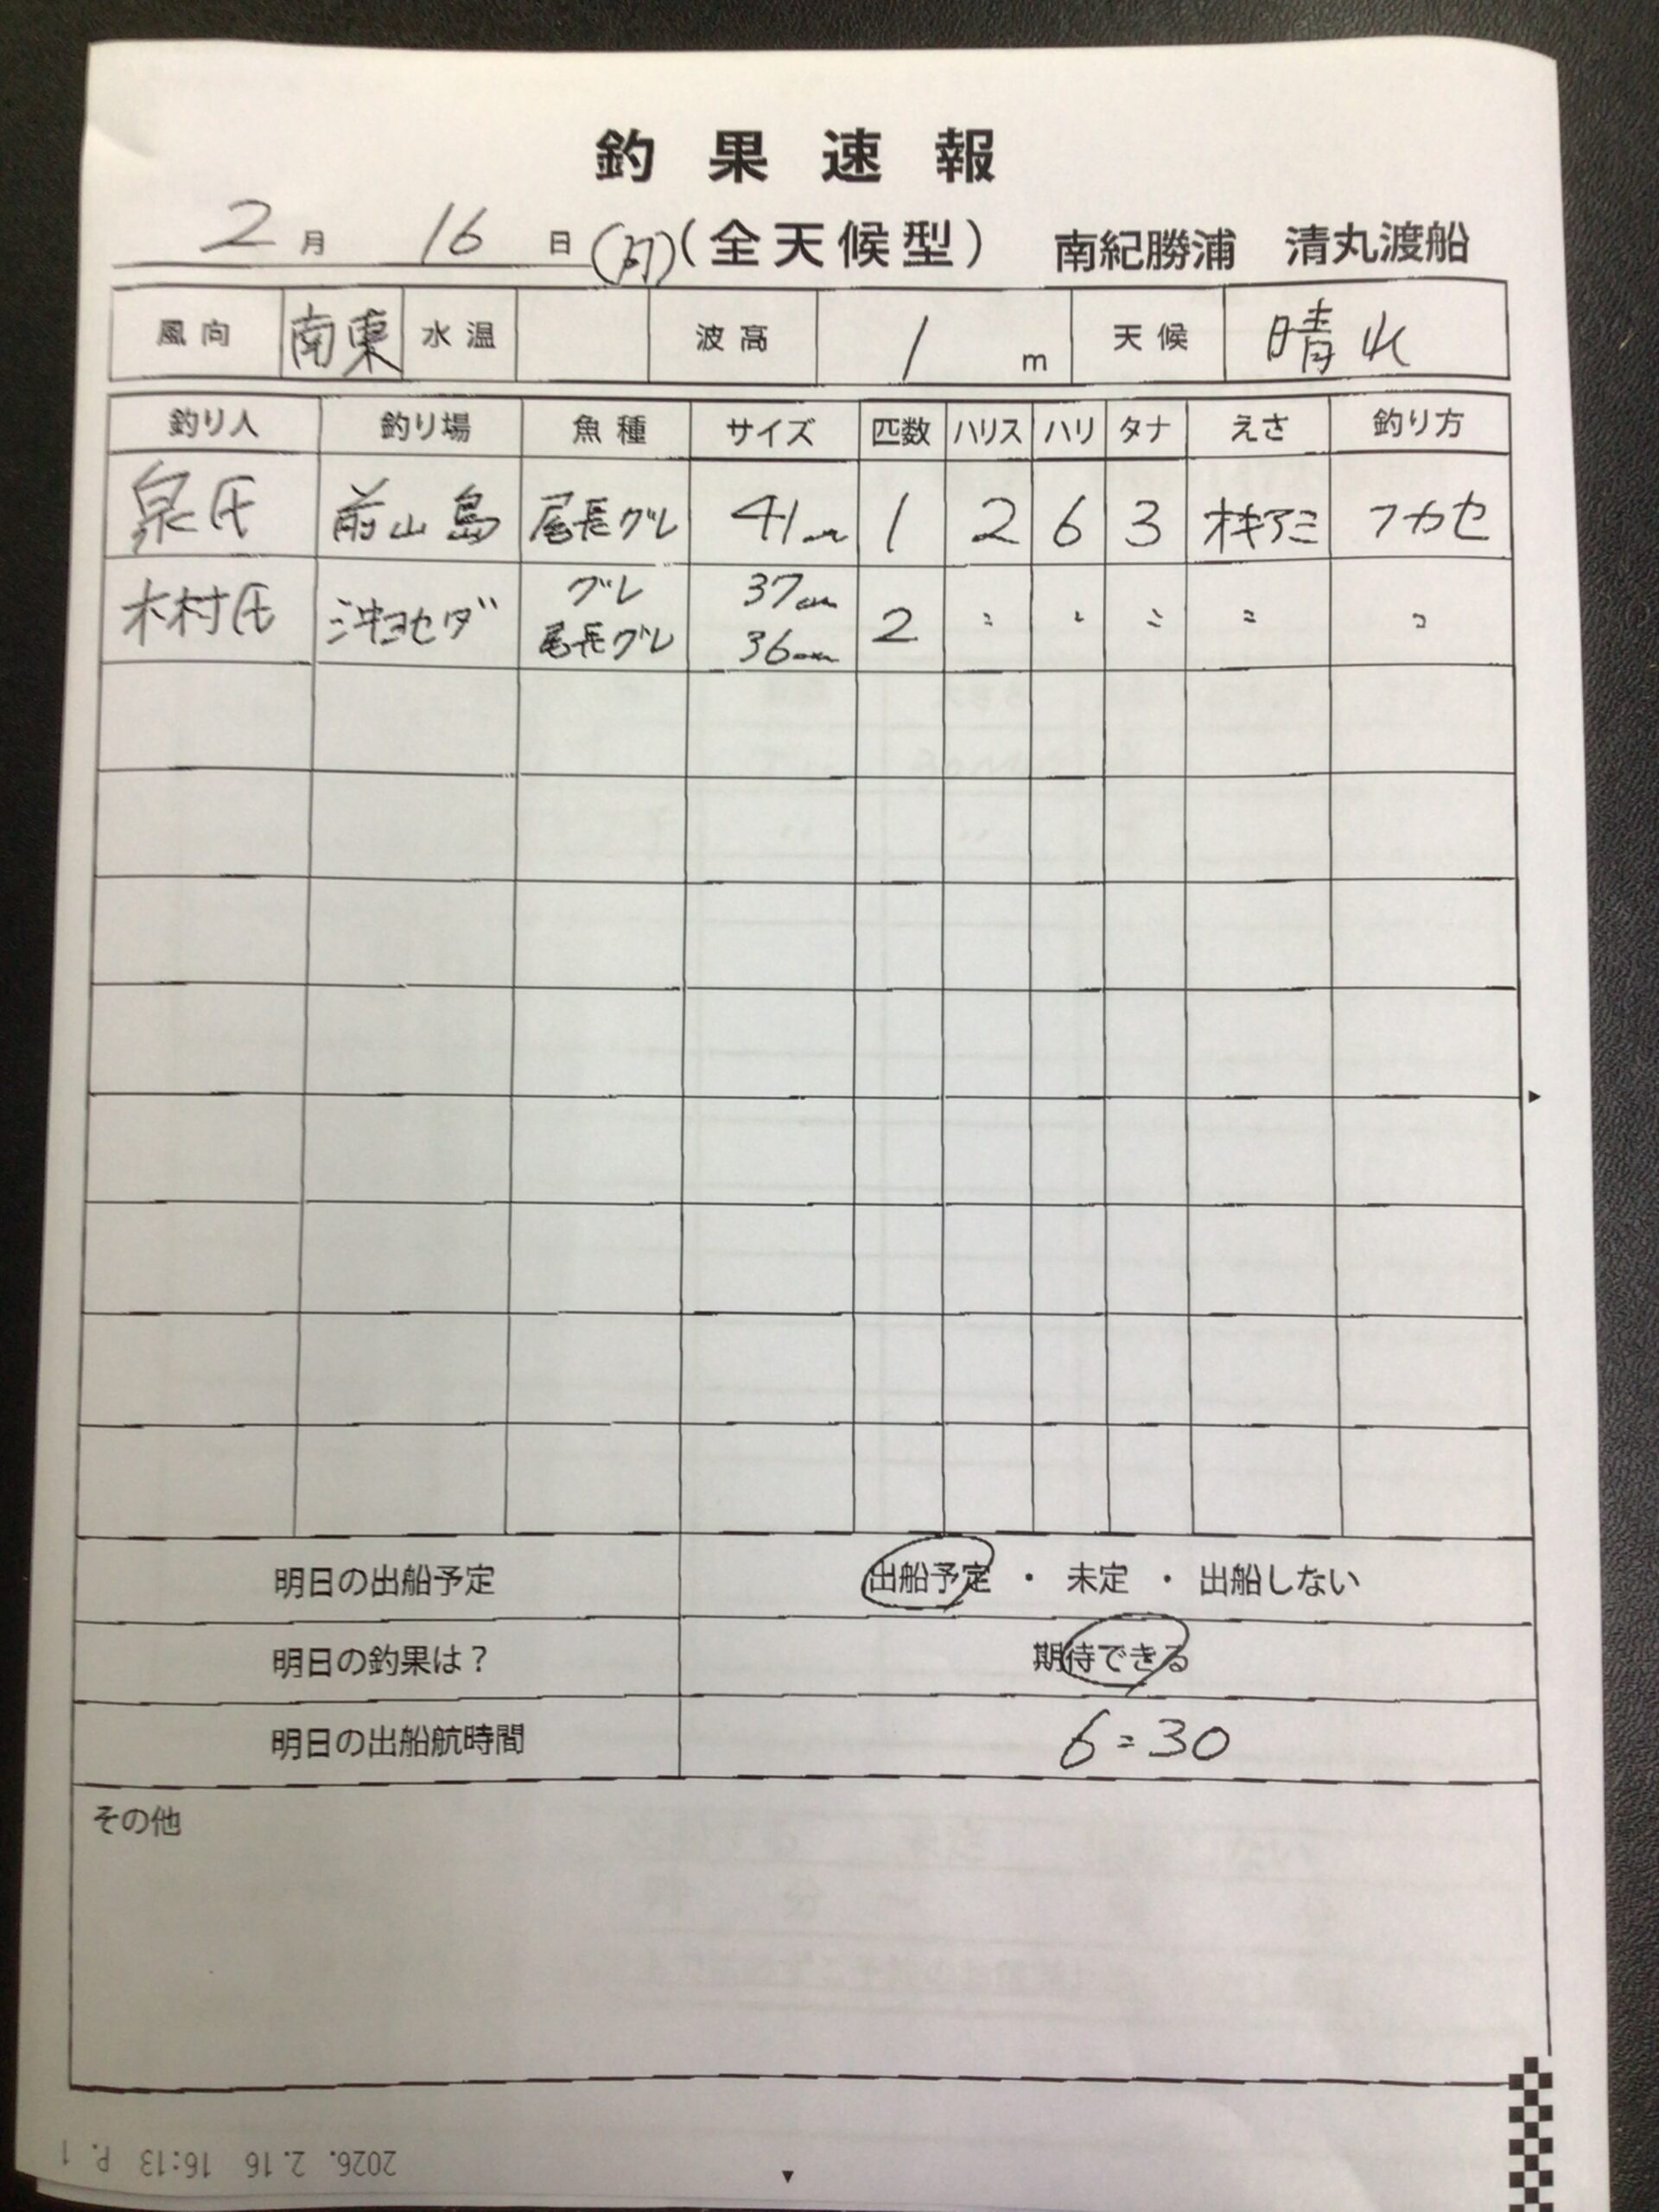 釣果速報
2月 16日(月)(全天候型) 南紀勝浦 清丸渡船
風向 南東 水温 波高 1 m 天候 晴れ
釣り人 釣り場 魚種 サイズ 匹数 ハリス ハリ タナ えさ 釣り方
泉氏 前山島 尾長グレ 41cm 1 2 6 3 オキアミ フカセ
木村氏 沖ヨセダ グレ 37cm 2 〃 〃 〃 〃 〃
尾長グレ 36cm
明日の出船予定 出船予定 ・ 未定 ・ 出船しない
明日の釣果は? 期待できる
明日の出船航時間 6:30
その他
2026. 2.16 16:13 P. 1